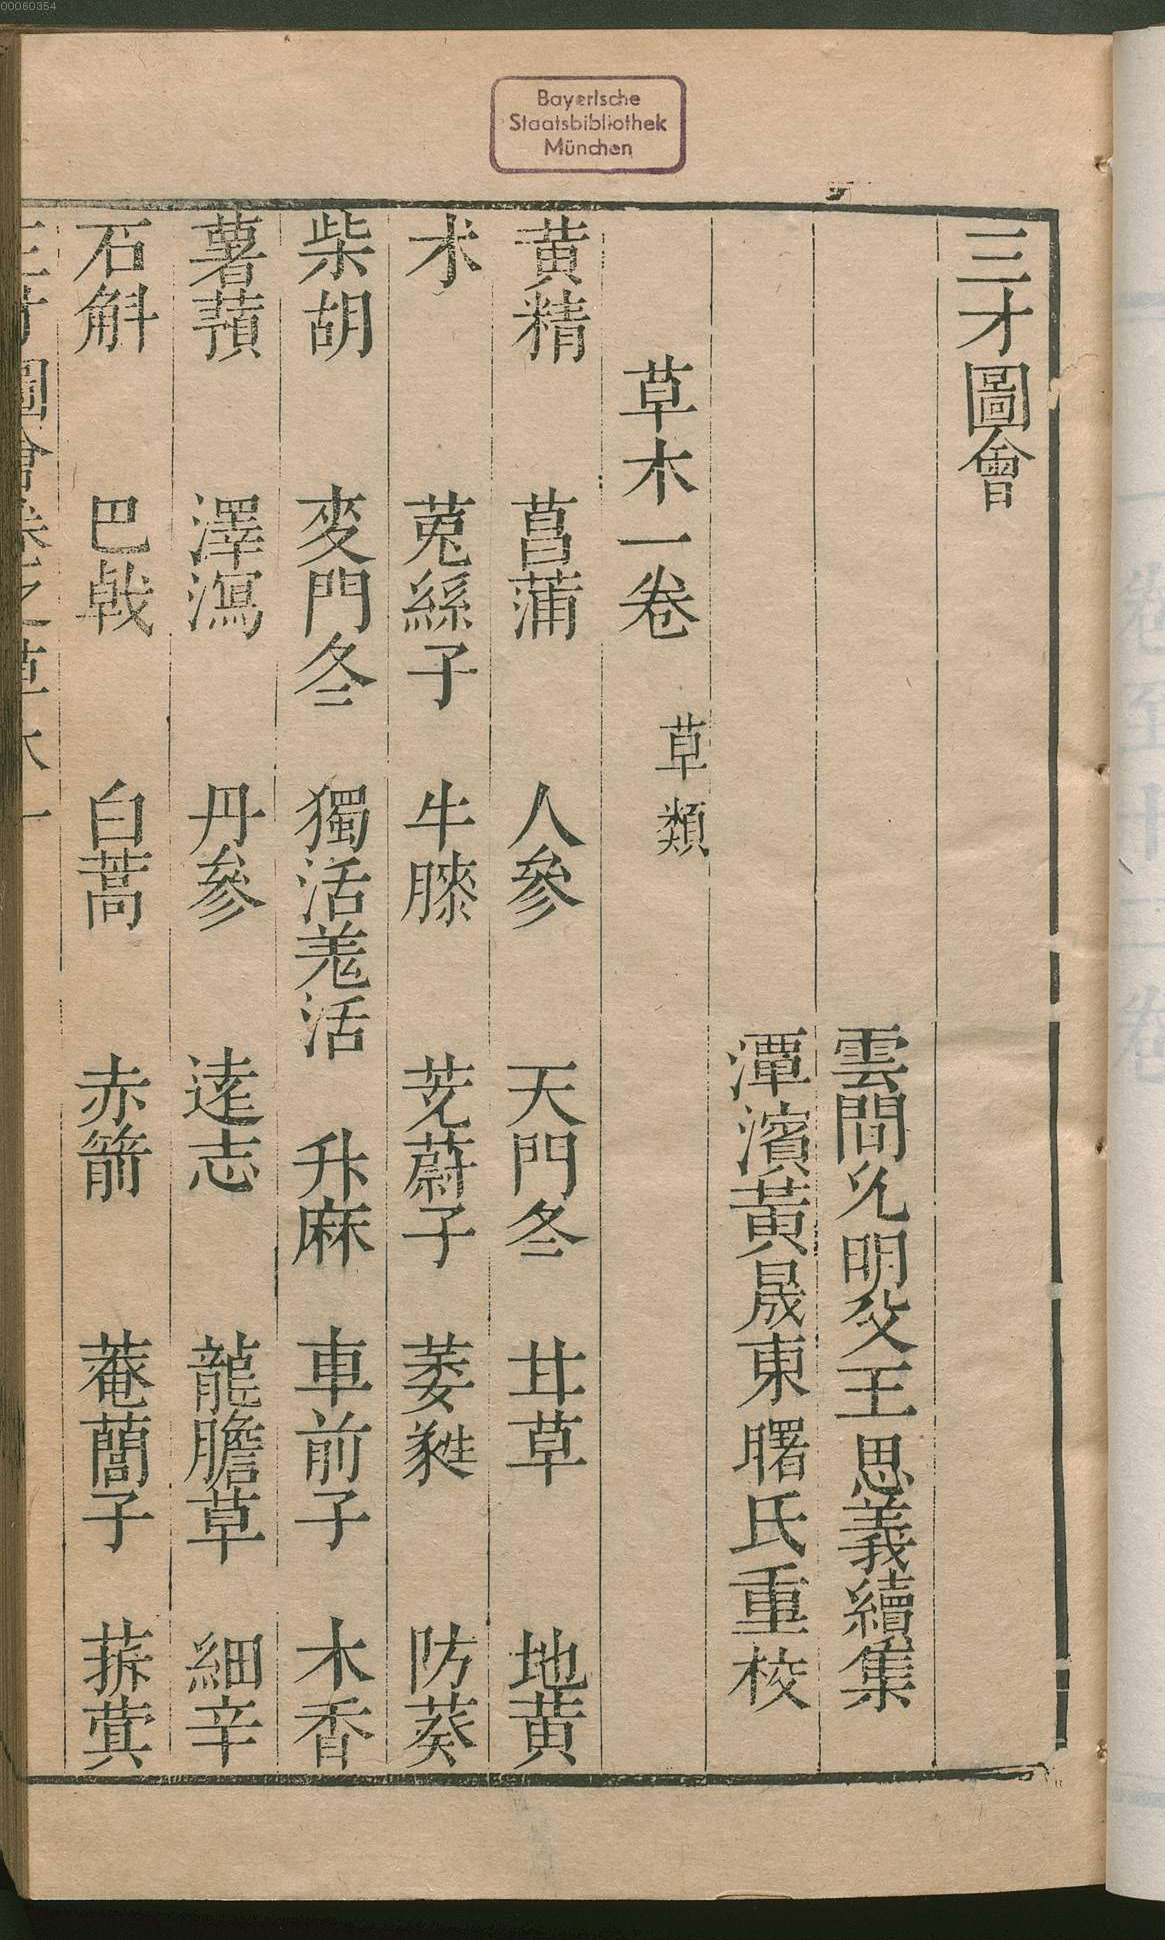 00060354
Bayerische
Staatsbibliothek
München
三才圖會
雲間允明父王思義續集
潭濱黃晟東曙氏重校
草木一卷 草類
黄精 菖蒲 人參 天門冬 甘草 地黄
朮 菟絲子 牛膝 茺蔚子 萎蕤 防葵
柴胡 麥門冬 獨活羗活 升麻 車前子 木香
薯蕷 澤瀉 丹參 逺志 龍膽草 細辛
石斛 巴戟 白蒿 赤箭 菴䕡子 菥蓂
三才圖會卷之草木一